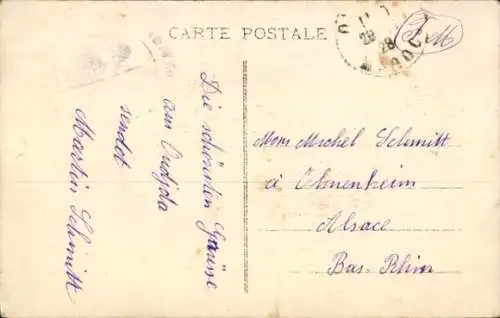 CARTE POSTALE
28
F.M
Die schönsten Grüsse
aus Oudjda
sendet
Martin Schmitt
Mons Michel Schmitt
à Ohnenheim
Alsace
Bas-Rhin